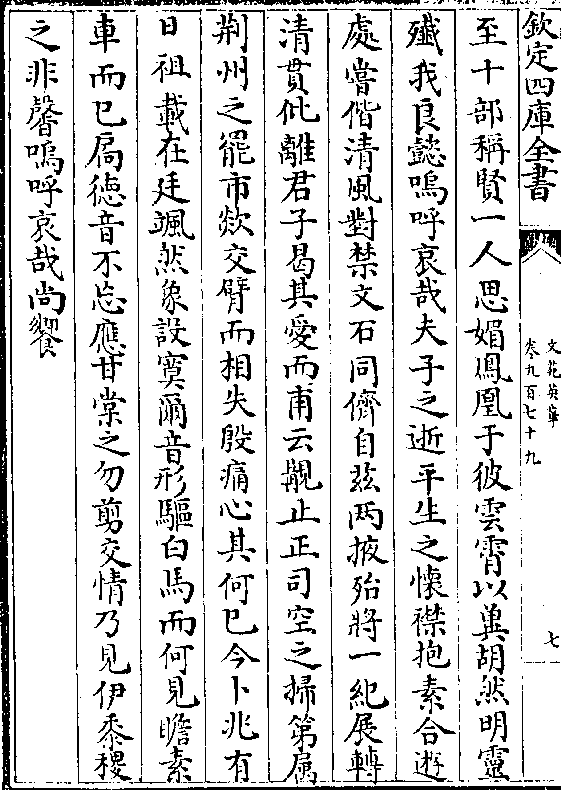 欽定四庫全書
文苑英華
卷九百七十九
七
至十部稱賢一人思媚鳳凰于彼雲霄以冀胡然明靈
殲我良懿嗚呼哀哉夫子之逝平生之懷襟抱素合遊
處嘗偕清風對禁文石同儕自茲两掖殆將一紀展轉
清貫仳離君子曷其愛而甫云覯止正司空之掃第属
荆州之罷市欻交臂而相失殷痛心其何已今卜兆有
日祖載在廷颯然象設寞爾音形驅白馬而何見瞻素
車而已扃徳音不忘應甘棠之勿剪交情乃見伊黍稷
之非馨嗚呼哀哉尚饗